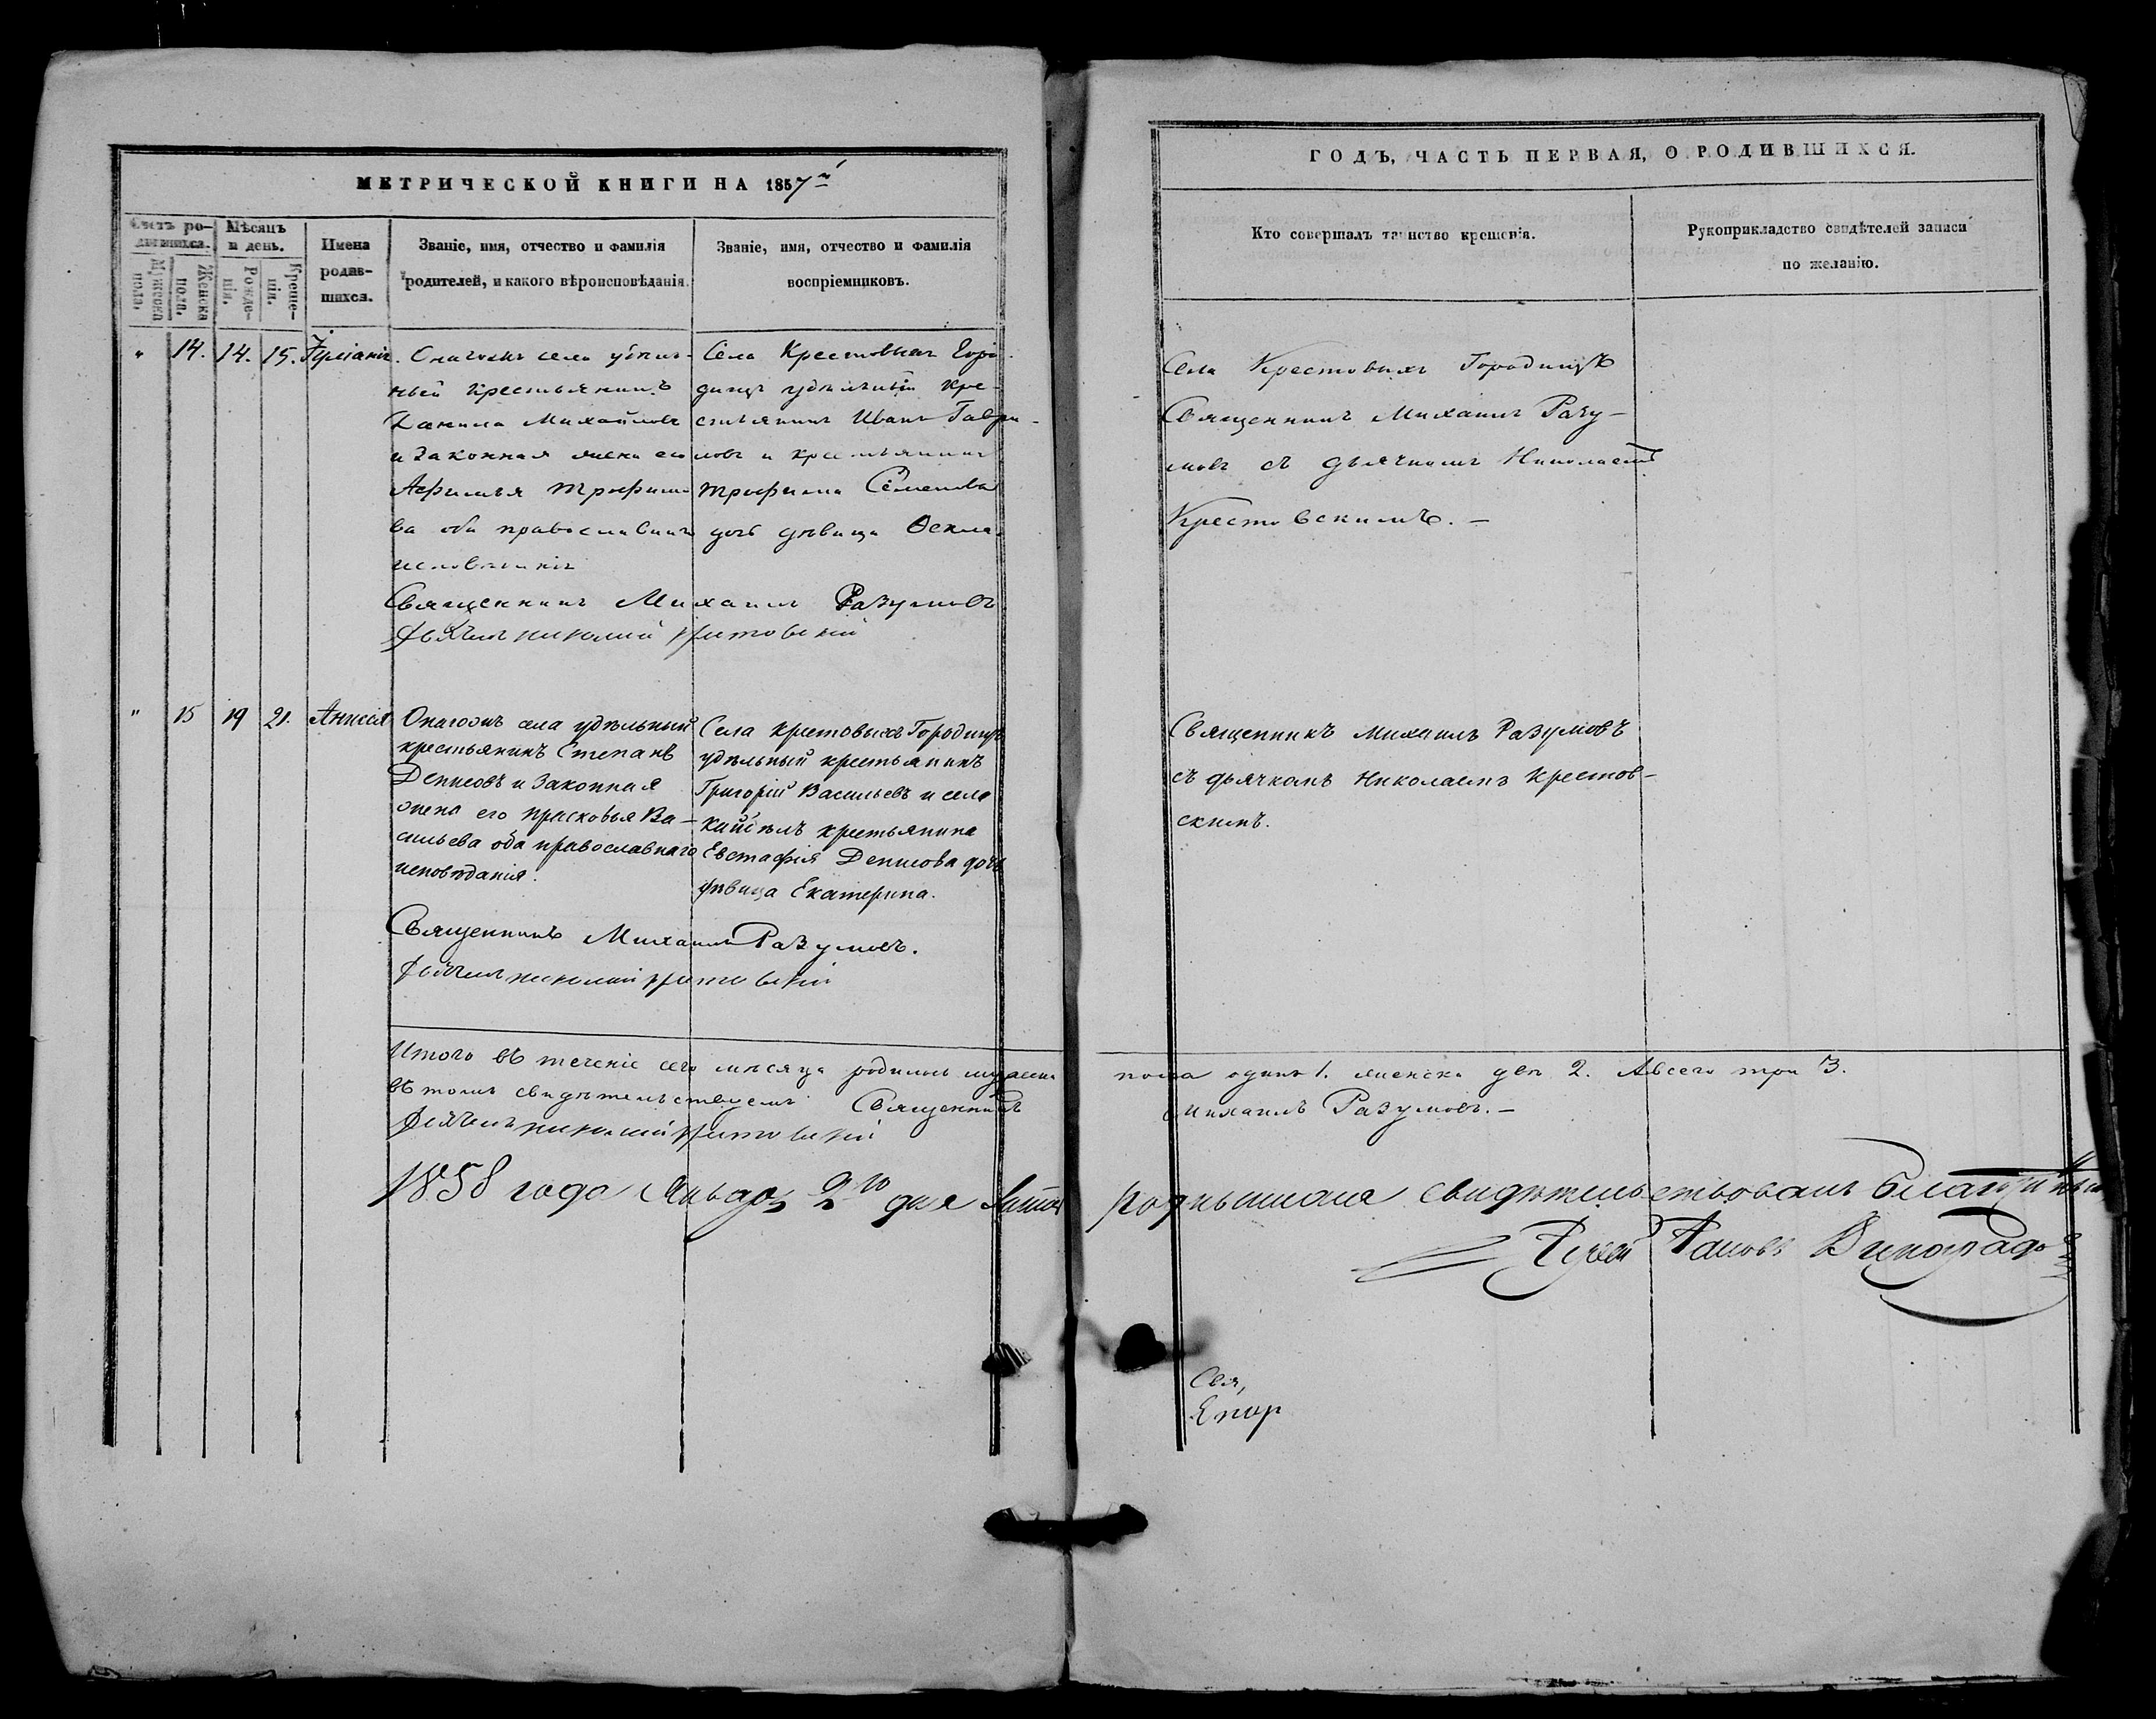 МЕТРИЧЕСКОЙ КНИГИ НА 1857й
Счетъ родившихся.
Мужеска пола.
Женска пола.
Мѣсяцъ и день.
Рожденія.
Крещенія.
Имена родившихся.
Званіе, имя, отчество и фамилія
родителей, и какого вѣроисповѣданія.
Званіе, имя, отчество и фамилія
воспріемниковъ.
" 14. 14. 15. Іуліанія.
села удѣль-
ный крестьянинъ
Данила Михайловъ
и законная жена его
Трофимо
ва оба православнаго
исповѣданія
Села Крестовыхъ Горо-
дищъ удѣльный кре-
стьянинъ Иванъ Гаври-
ловъ и крестьянина
Трофима Семенова
дочь дѣвица Ѳекла.
Священникъ Михаилъ Разумовъ
Дьячекъ Николай Крестовскій
" 15 19 21. Анисія
Онагожъ села удѣльный
крестьянинъ Степанъ
Денисовъ и законная
жена его Прасковья Ва-
сильева оба православнаго
исповѣданія.
Села Крестовыхъ Городищъ
удѣльный крестьянинъ
Григорій Васильевъ и села
крестьянина
Евстафія Денисова дочь
дѣвица Екатерина.
Священникъ Михаилъ Разумовъ.
Дьячекъ Николай Крестовскій
Итого въ теченіе сего мѣсяца родилось мужеска
въ томъ свидѣтельствуемъ Священникъ
Дьячекъ Николай Крестовскій
1858 года Января 2го дня
ГОДЪ, ЧАСТЬ ПЕРВАЯ, О РОДИВШИХСЯ.
Кто совершалъ таинство крещенія.
Рукоприкладство свидѣтелей записи
по желанію.
Села Крестовыхъ Городищъ
Священникъ Михаилъ Разу-
мовъ съ дьячкомъ Николаемъ
Крестовскимъ. –
Священникъ Михаилъ Разумовъ
съ дьячкомъ Николаемъ Крестов-
скимъ.
пола одинъ 1. женска двѣ 2. А всего три 3.
Михаилъ Разумовъ. –
свидѣтельствовалъ Благочинный
Виноградовъ
Свя,